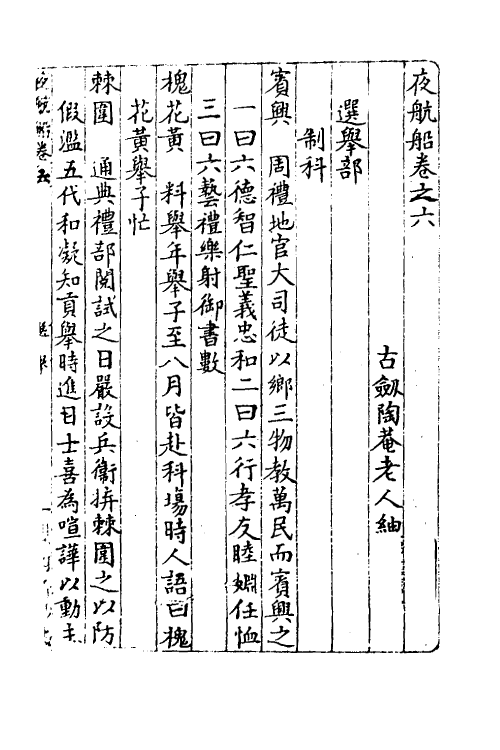 夜航船卷之六
古劔陶菴老人紬
選舉部
制科
賓興　周禮地官大司徒以鄉三物教萬民而賓興之
一曰六德智仁聖義忠和二曰六行孝友睦婣任恤
三曰六藝禮樂射御書數
槐花黃　料舉年舉子至八月皆赴科塲時人語曰槐
花黃舉子忙
棘圍　通典禮部閱試之日嚴設兵衛拵棘圍之以防
假濫五代和凝知貢舉時進士喜為喧譁以動主
夜航船卷